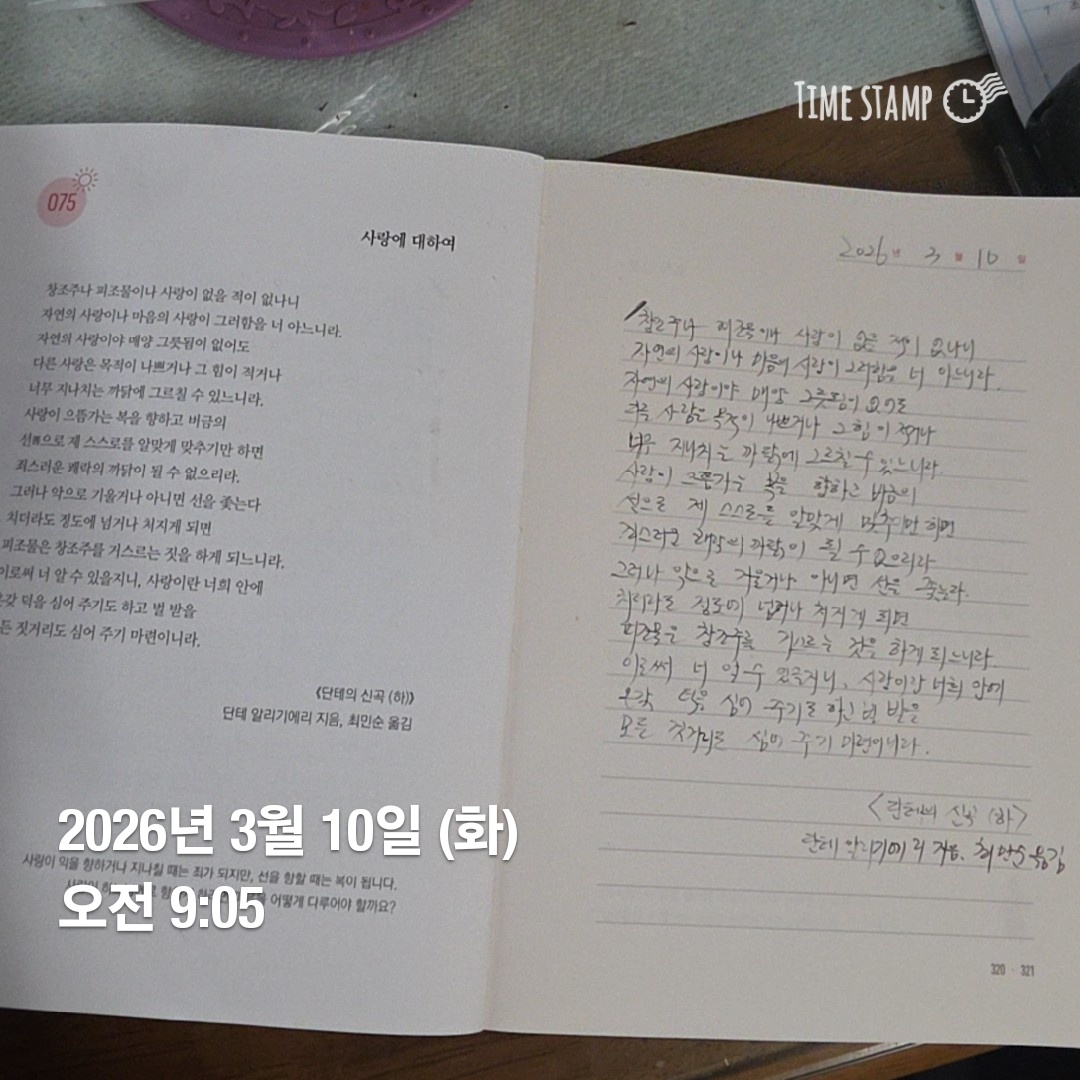 TIME STAMP
075
사랑에 대하여
창조주나 피조물이나 사랑이 없을 적이 없나니
자연의 사랑이나 마음의 사랑이 그러함을 너 아느니라.
자연의 사랑이야 매양 그릇됨이 없어도
다른 사랑은 목적이 나쁘거나 그 힘이 적거나
너무 지나치는 까닭에 그르칠 수 있느니라.
사랑이 으뜸가는 복을 향하고 버금의
선善으로 제 스스로를 알맞게 맞추기만 하면
죄스러운 쾌락의 까닭이 될 수 없으리라.
그러나 악으로 기울거나 아니면 선을 좇는다
치더라도 정도에 넘거나 처지게 되면
피조물은 창조주를 거스르는 짓을 하게 되느니라.
이로써 너 알 수 있을지니, 사랑이란 너희 안에
온갖 덕을 심어 주기도 하고 벌 받을
든 짓거리도 심어 주기 마련이니라.
《단테의 신곡 (하)》
단테 알리기에리 지음, 최민순 옮김
사랑이 악을 향하거나 지나칠 때는 죄가 되지만, 선을 향할 때는 복이 됩니다.
어떻게 다루어야 할까요?
2026년 3월 10일 (화)
오전 9:05
2026년 3월 10일
창조주나 피조물이나 사랑이 없을 적이 없나니
자연의 사랑이나 마음의 사랑이 그러함을 너 아느니라.
자연의 사랑이야 매양 그릇됨이 없어도
다른 사랑은 목적이 나쁘거나 그 힘이 적거나
너무 지나치는 까닭에 그르칠 수 있느니라
사랑이 으뜸가는 복을 향하고 버금의
선으로 제 스스로를 알맞게 맞추기만 하면
죄스러운 쾌락의 까닭이 될 수 없으리라
그러나 악으로 기울거나 아니면 선을 좇는다.
치더라도 정도에 넘거나 처지게 되면
피조물은 창조주를 거스르는 것을 하게 되느니라.
이로써 너 알 수 있을지니, 사랑이란 너희 안에
온갖 덕을 심어 주기도 하고 벌 받을
모든 짓거리도 심어 주기 마련이니라.
<단테의 신곡 (하)>
단테 알리기에리 지음. 최민순 옮김
320 · 321